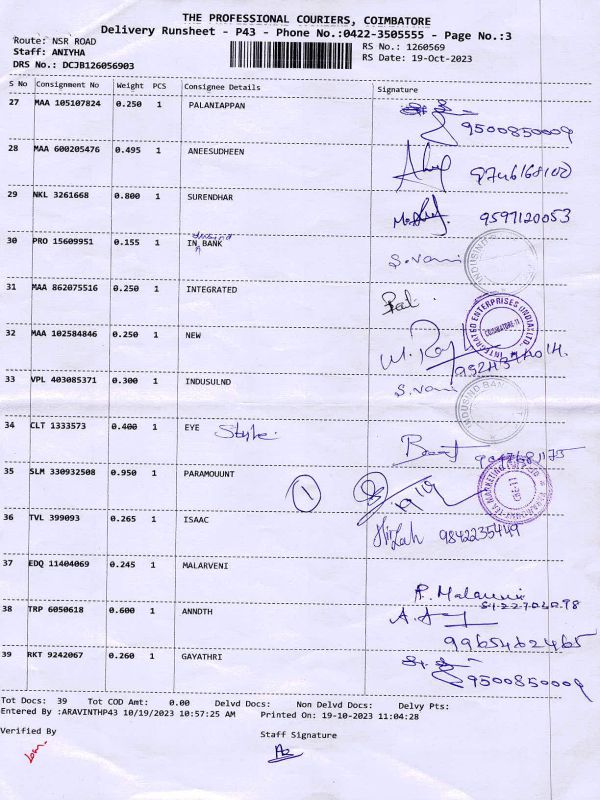 THE PROFESSIONAL COURIERS, COIMBATORE
Delivery Runsheet - P43 - Phone No.:0422-3505555 - Page No.:3
Route: NSR ROAD
RS No.: 1260569
Staff: ANIYHA
RS Date: 19-Oct-2023
DRS No.: DCJB126056903
S No Consignment No Weight PCS Consignee Details Signature
27 MAA 105107824 0.250 1 PALANIAPPAN
9500850009
28 MAA 600205476 0.495 1 ANEESUDHEEN
29 NKL 3261668 0.800 1 SURENDHAR 9597120053
indusind
30 PRO 15609951 0.155 1 IN BANK S.Vani
31 MAA 862075516 0.250 1 INTEGRATED
INTEGRATED ENTERPRISES (INDIA) LTD.
COIMBATORE-11
32 MAA 102584846 0.250 1 NEW
33 VPL 403085371 0.300 1 INDUSULND S.vani
INDUSIND BANK
34 CLT 1333573 0.400 1 EYE Style
35 SLM 330932508 0.950 1 PARAMOUUNT 1 19/10
36 TVL 399093 0.265 1 ISAAC 9842235449
37 EDQ 11404069 0.245 1 MALARVENI
38 TRP 6050618 0.600 1 ANNDTH
9965462465
39 RKT 9242067 0.260 1 GAYATHRI
9500850009
Tot Docs: 39 Tot COD Amt: 0.00 Delvd Docs: Non Delvd Docs: Delvy Pts:
Entered By :ARAVINTHP43 10/19/2023 10:57:25 AM Printed On: 19-10-2023 11:04:28
Verified By Staff Signature